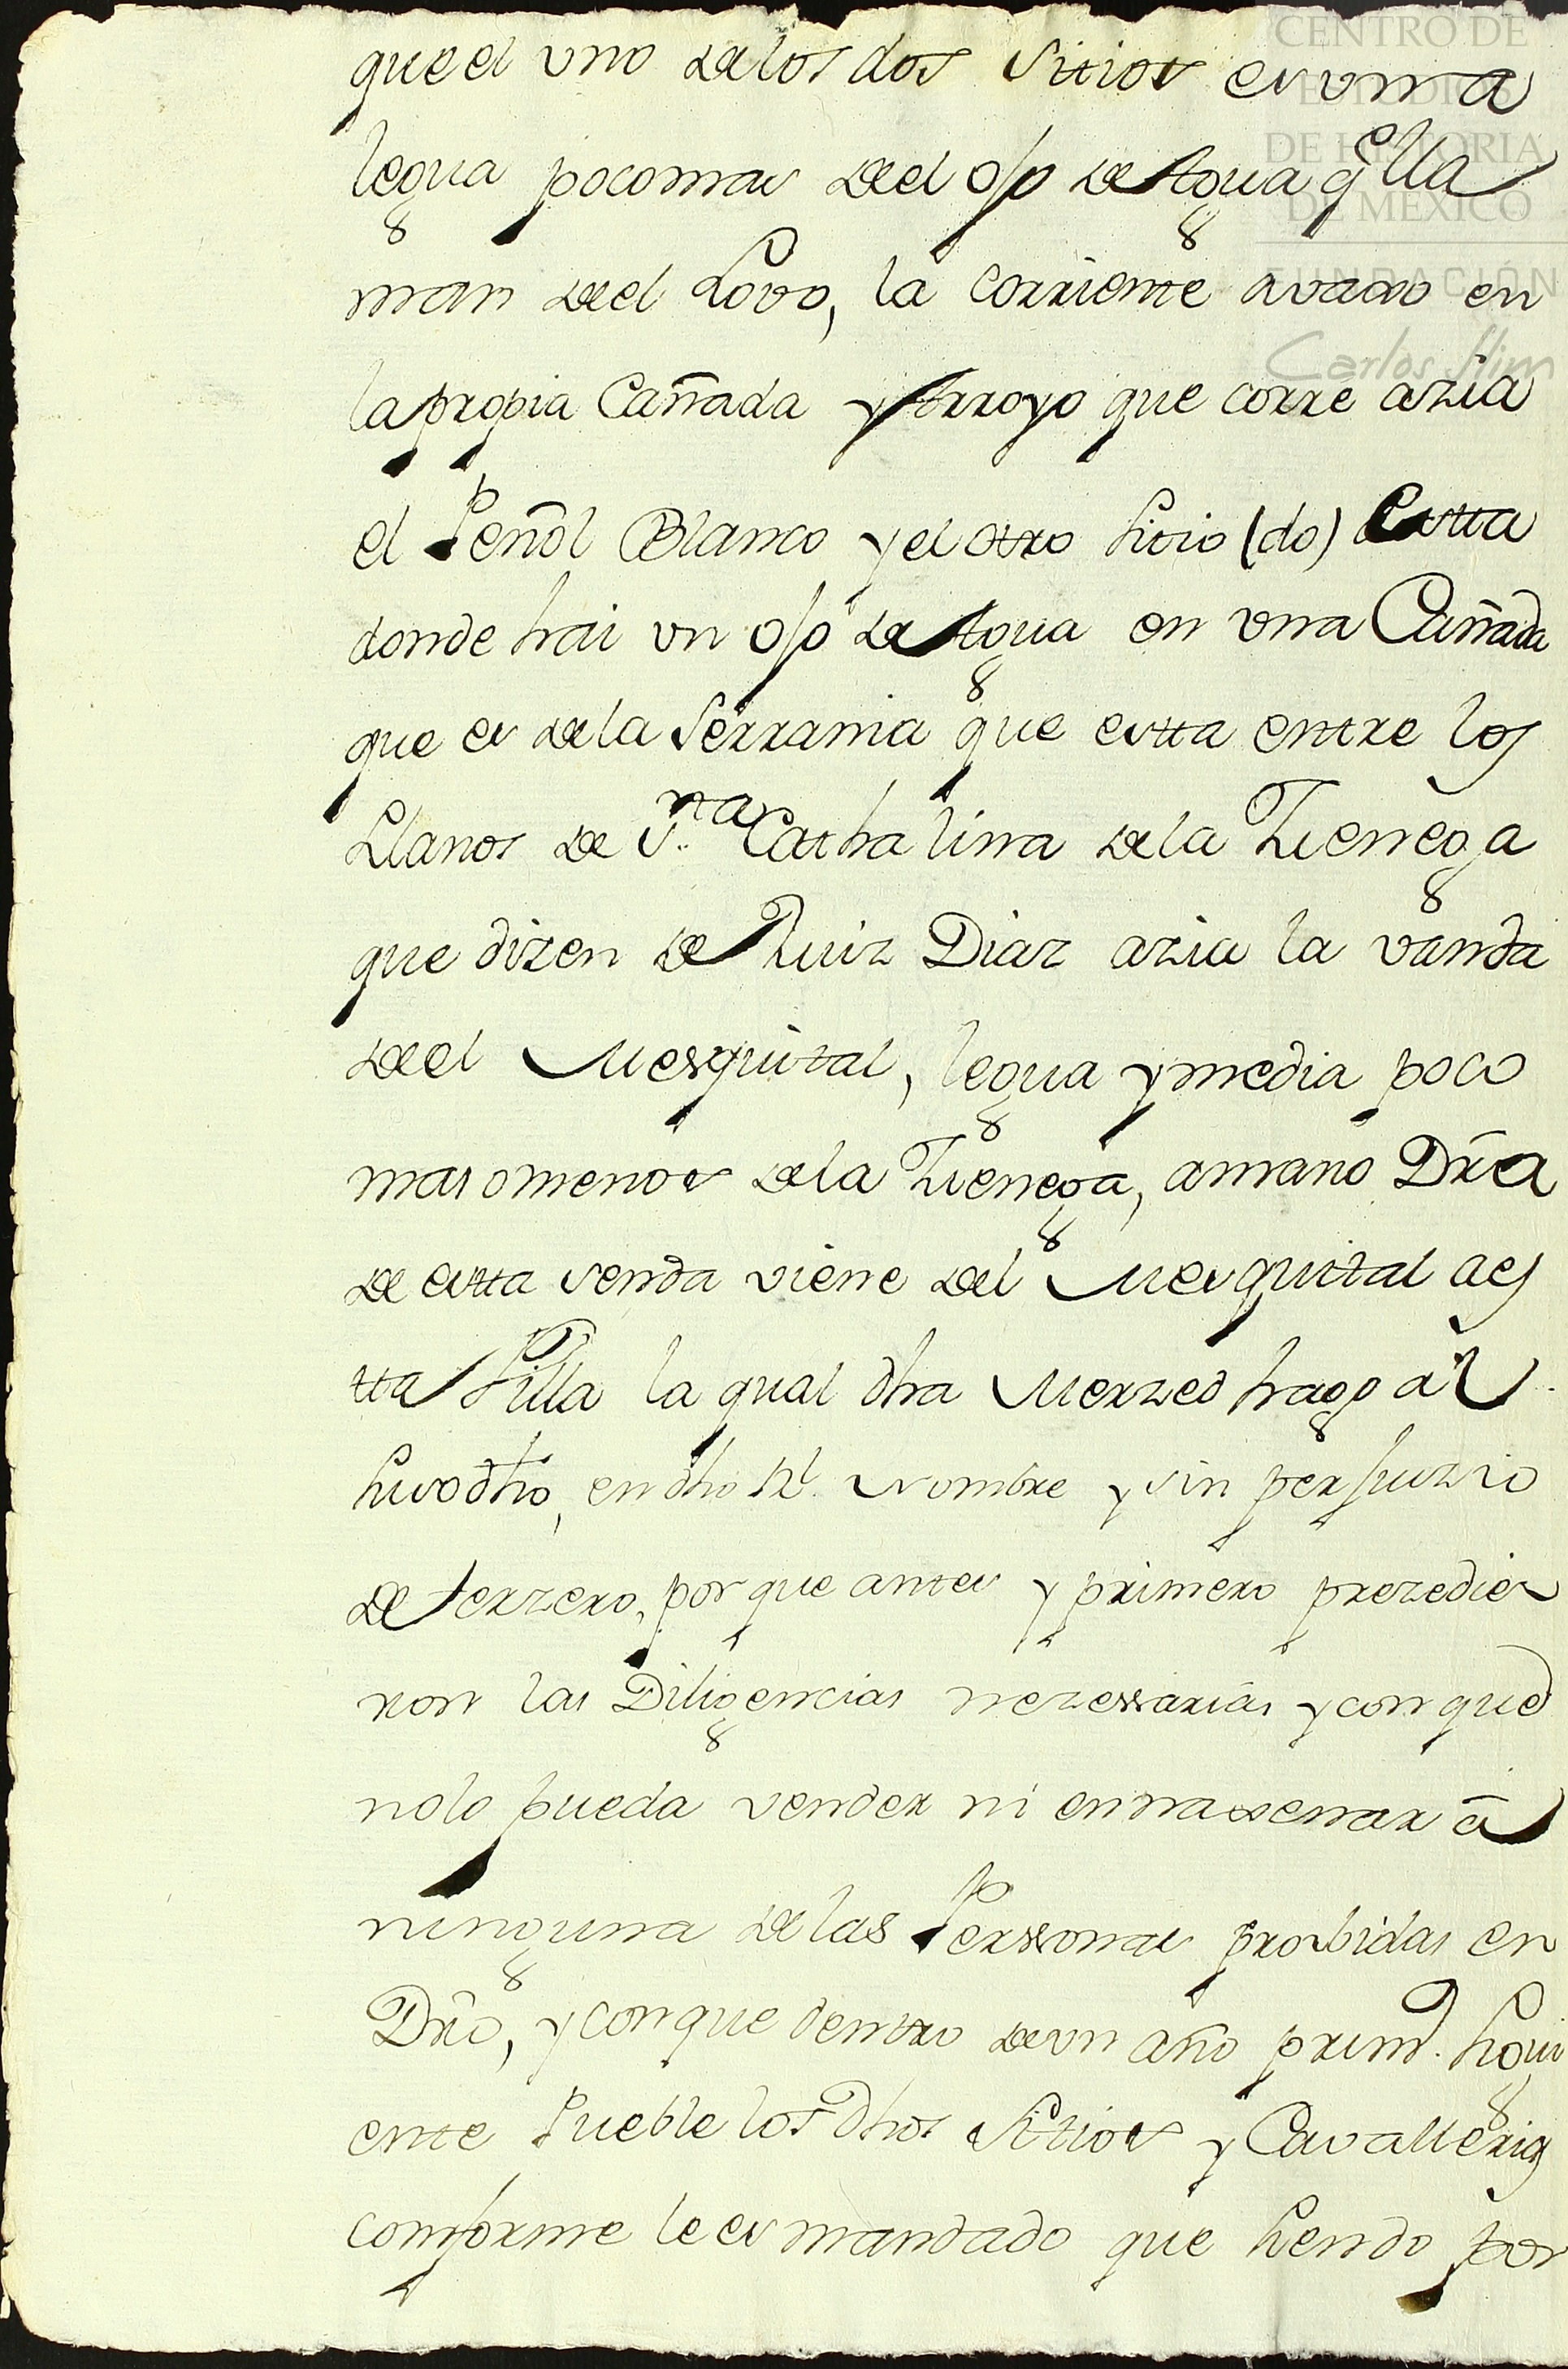 que el vno de los dos Sitios es vna
legua poco mas de el ojo de Agua q̃ lla
man de el Lovo, la corriente avaxo en
la propia Cañada y Arroyo que corre azia
el Peñol Blanco y el otro sitio (do) Estta
donde hai vn ojo de Agua en vna Cañada
que es de la Serrania que estta entre los
Llanos de S.ta Cathalina de la Zienega
que dizen de Ruiz Diaz azia la vanda
de el Mesquital, legua y media poco
mas o menos de la Zienega, a mano Dr̃a
de estta senda viene del Mesquital a es
tta Villa la qual dha Merzed hago al
suso dho, en dho Rl. Nombre y sin perjuizio
de terzero, por que antes y primero prezedie
ron las Diligencias nezessarias y con que
no lo pueda vender ni ennaxenar â
ninguna de las Perssonas proibidas en
Dr̃o, y con que dentro de vn año prim.o sigui
ente Pueble los dhos Sitios y Cavallerias
comforme le es mandado que siendo por
CENTRO DE
ESTUDIOS
DE HISTORIA
DE MEXICO
FUNDACIÓN
Carlos Slim